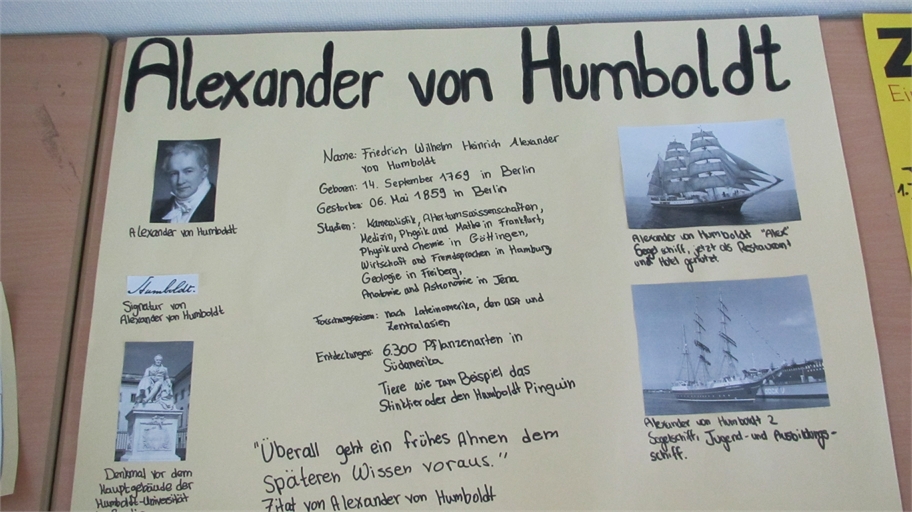 Alexander von Humboldt
Alexander von Humboldt
Humboldt.
Signatur von
Alexander von Humboldt
Denkmal vor dem
Hauptgebäude der
Humboldt-Universität
Name: Friedrich Wilhelm Heinrich Alexander
von Humboldt
Geboren: 14. September 1769 in Berlin
Gestorben: 06. Mai 1859 in Berlin
Studien: Kameralistik, Altertumswissenschaften,
Medizin, Physik und Mathe in Frankfurt,
Physik und Chemie in Göttingen,
Wirtschaft und Fremdsprachen in Hamburg,
Geologie in Freiberg,
Anatomie und Astronomie in Jena
Forschungsreisen: nach Lateinamerika, den USA und
Zentralasien
Entdeckungen: 6.300 Pflanzenarten in
Südamerika
Tiere wie zum Beispiel das
Stinktier oder den Humboldt Pinguin
"Überall geht ein frühes Ahnen dem
späteren Wissen voraus."
Zitat von Alexander von Humboldt
Alexander von Humboldt "Alex"
Segelschiff, jetzt als Restaurant
und Hotel genutzt
Alexander von Humboldt 2
Segelschiff, Jugend- und Ausbildungs-
schiff.
Z
Ei
1.